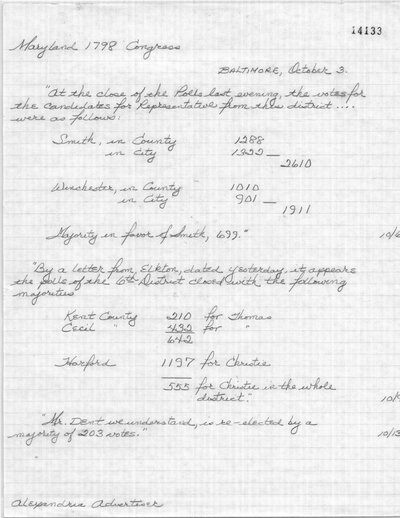 14133
Maryland 1798 Congress
BALTIMORE, October 3.
"At the close of the Polls last evening, the votes for
the candidates for Representative from this district ....
were as follows:
Smith, in County 1288
in City 1322 —
2610
Winchester, in County 1010
in City 901 —
1911
Majority in favor of Smith, 699."
"By a letter from Elkton, dated yesterday, it appears
the polls of the 6th District closed with the following
majorities
Kent County 210 for Thomas
Cecil " 432 for "
642
Harford 1197 for Christie
555 for Christie in the whole
district."
"Mr. Dent we understand, is re-elected by a
majority of 203 votes."
10/13
Alexandria Advertiser